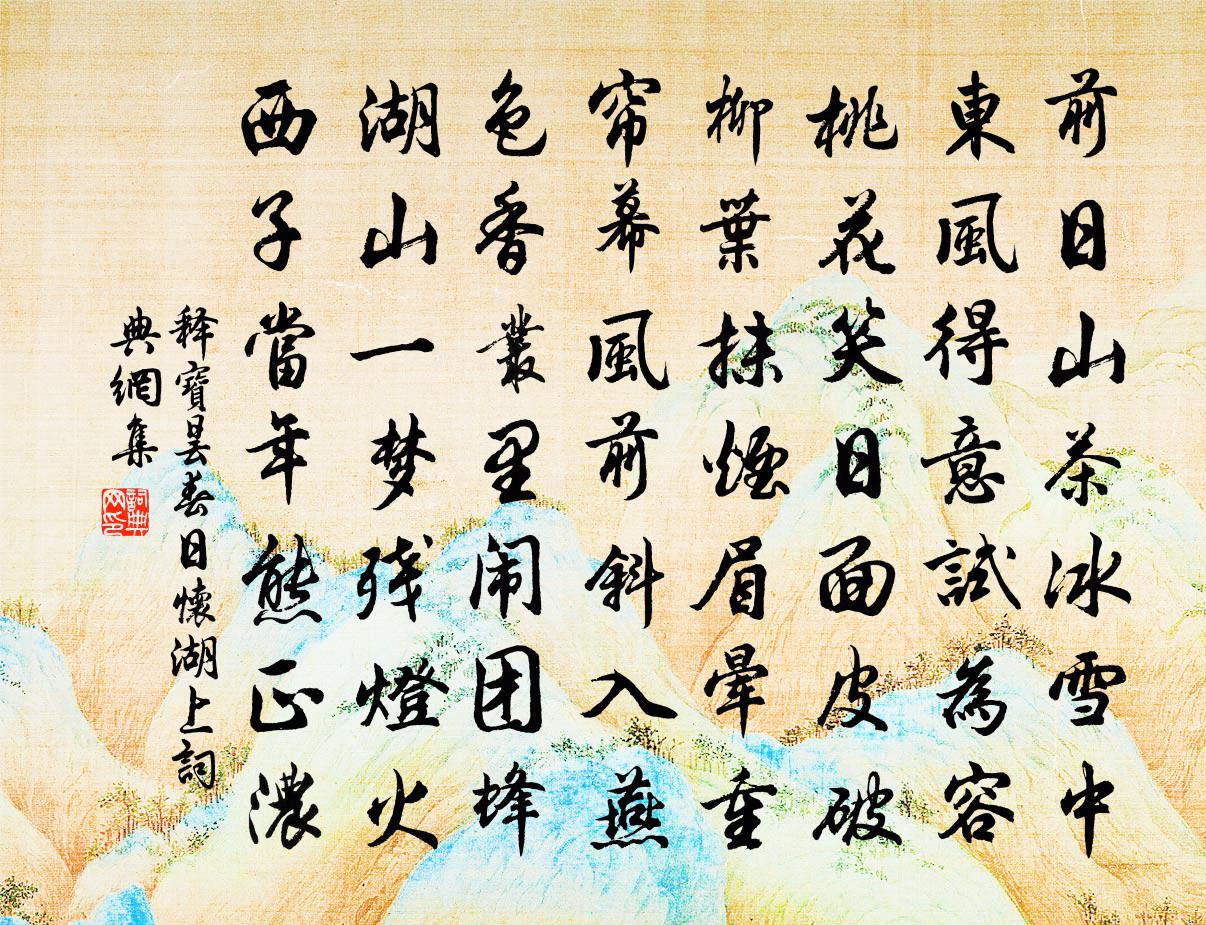 前日山茶冰雪中
東風得意試為容
桃花笑日面皮破
柳葉抹煙眉暈重
帘幕風前斜入燕
色香叢里闹团蜂
湖山一梦残燈火
西子當年態正濃
释寶曇春日懷湖上詞
典網集
詞典
网印